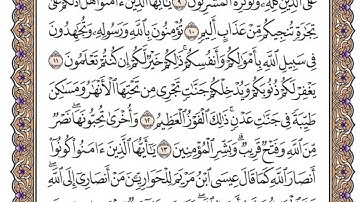 عَلَى ٱلدِّينِ كُلِّهِۦ وَلَوْ كَرِهَ ٱلْمُشْرِكُونَ ٩ يَٰٓأَيُّهَا ٱلَّذِينَ ءَامَنُوا۟ هَلْ أَدُلُّكُمْ عَلَىٰ
تِجَٰرَةٍ تُنجِيكُم مِّنْ عَذَابٍ أَلِيمٍ ١٠ تُؤْمِنُونَ بِٱللَّهِ وَرَسُولِهِۦ وَتُجَٰهِدُونَ
فِى سَبِيلِ ٱللَّهِ بِأَمْوَٰلِكُمْ وَأَنفُسِكُمْ ذَٰلِكُمْ خَيْرٌ لَّكُمْ إِن كُنتُمْ تَعْلَمُونَ ١١
يَغْفِرْ لَكُمْ ذُنُوبَكُمْ وَيُدْخِلْكُمْ جَنَّٰتٍ تَجْرِى مِن تَحْتِهَا ٱلْأَنْهَٰرُ وَمَسَٰكِنَ
طَيِّبَةً فِى جَنَّٰتِ عَدْنٍ ذَٰلِكَ ٱلْفَوْزُ ٱلْعَظِيمُ ١٢ وَأُخْرَىٰ تُحِبُّونَهَا نَصْرٌ
مِّنَ ٱللَّهِ وَفَتْحٌ قَرِيبٌ وَبَشِّرِ ٱلْمُؤْمِنِينَ ١٣ يَٰٓأَيُّهَا ٱلَّذِينَ ءَامَنُوا۟ كُونُوٓا۟
أَنصَارَ ٱللَّهِ كَمَا قَالَ عِيسَى ٱبْنُ مَرْيَمَ لِلْحَوَارِيِّـۧنَ مَنْ أَنصَارِىٓ إِلَى ٱللَّهِ